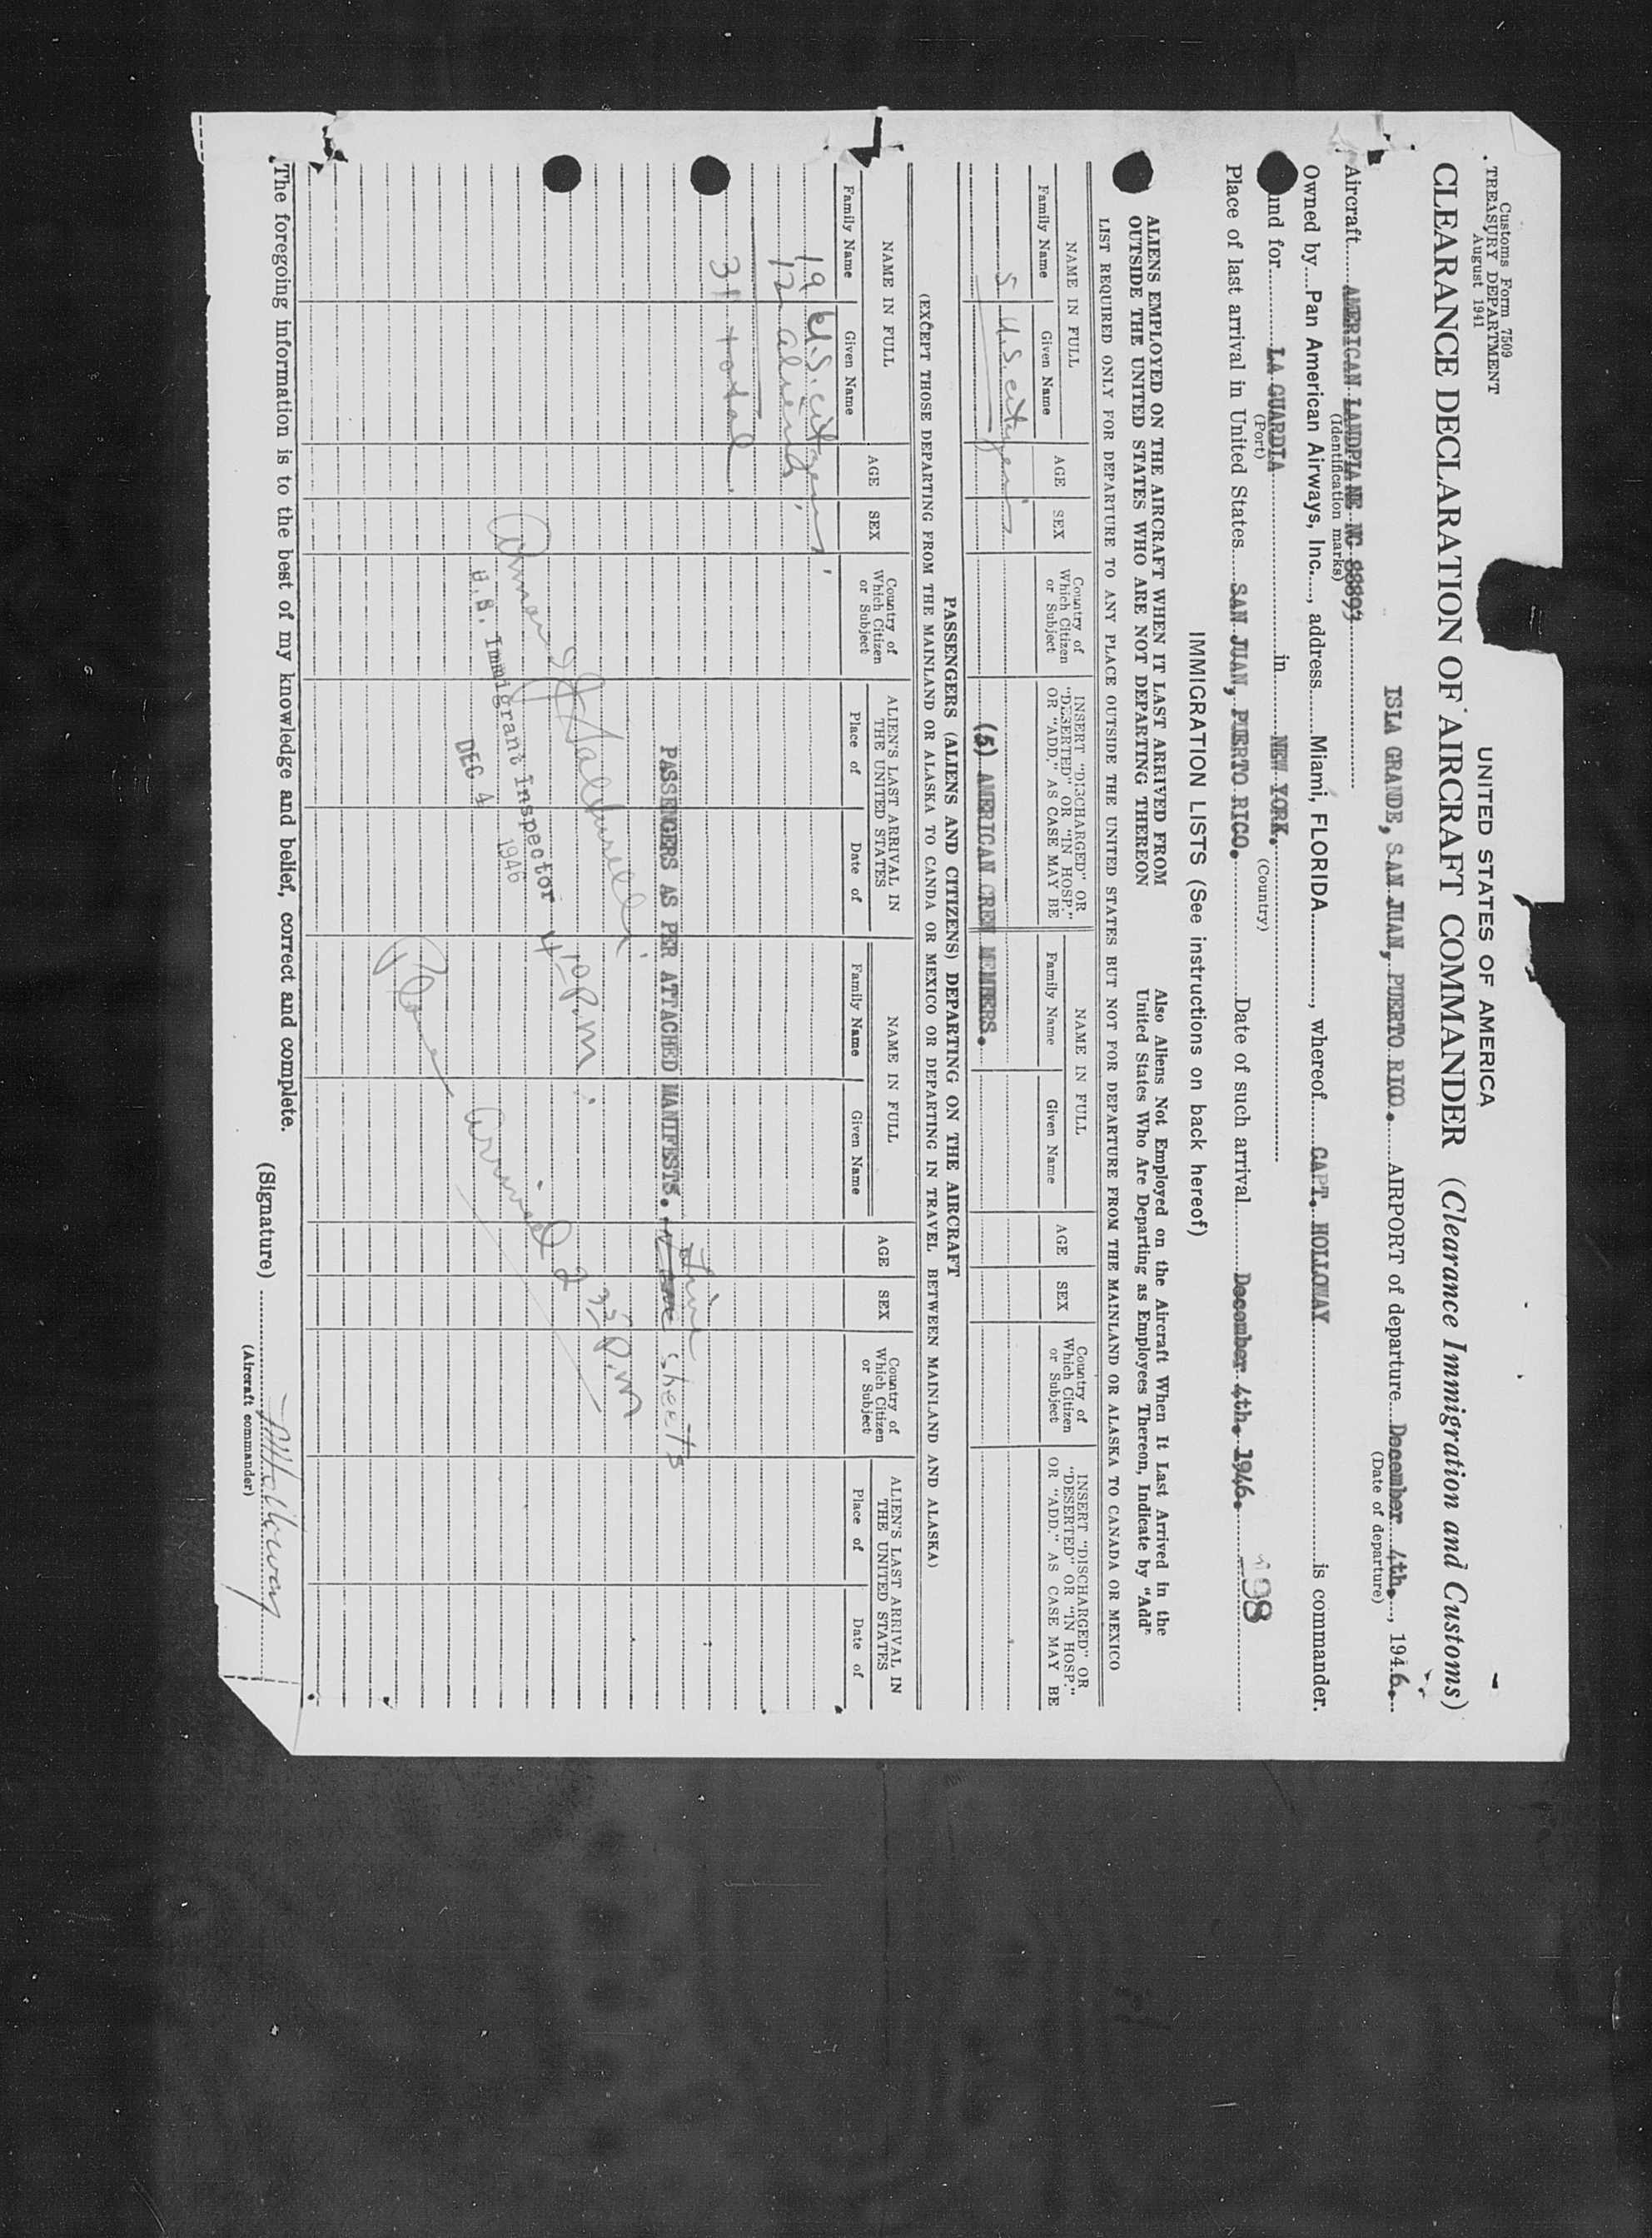 Customs Form 7509
TREASURY DEPARTMENT
August 1941
UNITED STATES OF AMERICA
CLEARANCE DECLARATION OF AIRCRAFT COMMANDER (Clearance Immigration and Customs)
ISLA GRANDE, SAN JUAN, PUERTO RICO. AIRPORT of departure December 4th., 1946.
(Date of departure)
Aircraft AMERICAN LANDPLANE NC 88899
(Identification marks)
Owned by Pan American Airways, Inc., address Miami, FLORIDA, whereof CAPT. HOLLOWAY is commander.
und for LA GUARDIA in NEW YORK.
(Port) (Country)
Place of last arrival in United States SAN JUAN, PUERTO RICO. Date of such arrival December 4th. 1946.
98
IMMIGRATION LISTS (See instructions on back hereof)
ALIENS EMPLOYED ON THE AIRCRAFT WHEN IT LAST ARRIVED FROM
OUTSIDE THE UNITED STATES WHO ARE NOT DEPARTING THEREON
Also Aliens Not Employed on the Aircraft When It Last Arrived in the
United States Who Are Departing as Employees Thereon, Indicate by "Add"
LIST REQUIRED ONLY FOR DEPARTURE TO ANY PLACE OUTSIDE THE UNITED STATES BUT NOT FOR DEPARTURE FROM THE MAINLAND OR ALASKA TO CANADA OR MEXICO
NAME IN FULL
Family Name Given Name
AGE
SEX
Country of
Which Citizen
or Subject
INSERT "DISCHARGED" OR
"DESERTED" OR "IN HOSP."
OR "ADD," AS CASE MAY BE
NAME IN FULL
Family Name Given Name
AGE
SEX
Country of
Which Citizen
or Subject
INSERT "DISCHARGED" OR
"DESERTED" OR "IN HOSP."
OR "ADD," AS CASE MAY BE
5 U.S. citizens
(5) AMERICAN CREW MEMBERS.
PASSENGERS (ALIENS AND CITIZENS) DEPARTING ON THE AIRCRAFT
(EXCEPT THOSE DEPARTING FROM THE MAINLAND OR ALASKA TO CANDA OR MEXICO OR DEPARTING IN TRAVEL BETWEEN MAINLAND AND ALASKA)
NAME IN FULL
Family Name Given Name
AGE
SEX
Country of
Which Citizen
or Subject
ALIEN'S LAST ARRIVAL IN
THE UNITED STATES
Place of Date of
NAME IN FULL
Family Name Given Name
AGE
SEX
Country of
Which Citizen
or Subject
ALIEN'S LAST ARRIVAL IN
THE UNITED STATES
Place of Date of
19 U.S. citizens,
12 aliens,
31 total.
PASSENGERS AS PER ATTACHED MANIFESTS. sheets
U.S. Immigrant Inspector
DEC 4 1946
4 10 P.M.
Plane arrived 2 35 P.M
The foregoing information is to the best of my knowledge and belief, correct and complete.
(Signature) Holloway
(Aircraft commander)